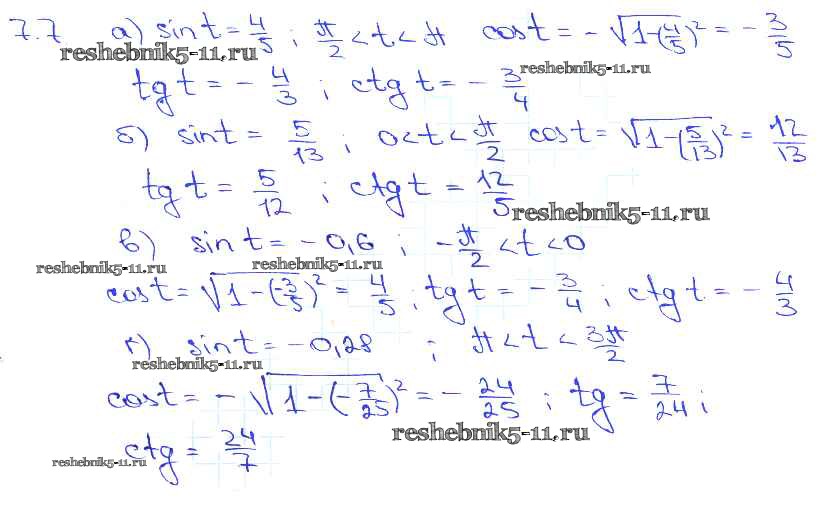 7.7 а) sin t = 4/5 ; π/2 < t < π cos t = -√(1-(4/5)²) = -3/5
reshebnik5-11.ru reshebnik5-11.ru
tg t = -4/3 ; ctg t = -3/4
б) sin t = 5/13 ; 0 < t < π/2 cos t = √(1-(5/13)²) = 12/13
tg t = 5/12 ; ctg t = 12/5
reshebnik5-11.ru
в) sin t = -0,6 ; -π/2 < t < 0
reshebnik5-11.ru reshebnik5-11.ru
cos t = √(1-(-3/5)²) = 4/5 ; tg t = -3/4 ; ctg t = -4/3
г) sin t = -0,28 ; π < t < 3π/2
reshebnik5-11.ru
cos t = -√(1-(-7/25)²) = -24/25 ; tg = 7/24 ;
reshebnik5-11.ru
ctg = 24/7
reshebnik5-11.ru